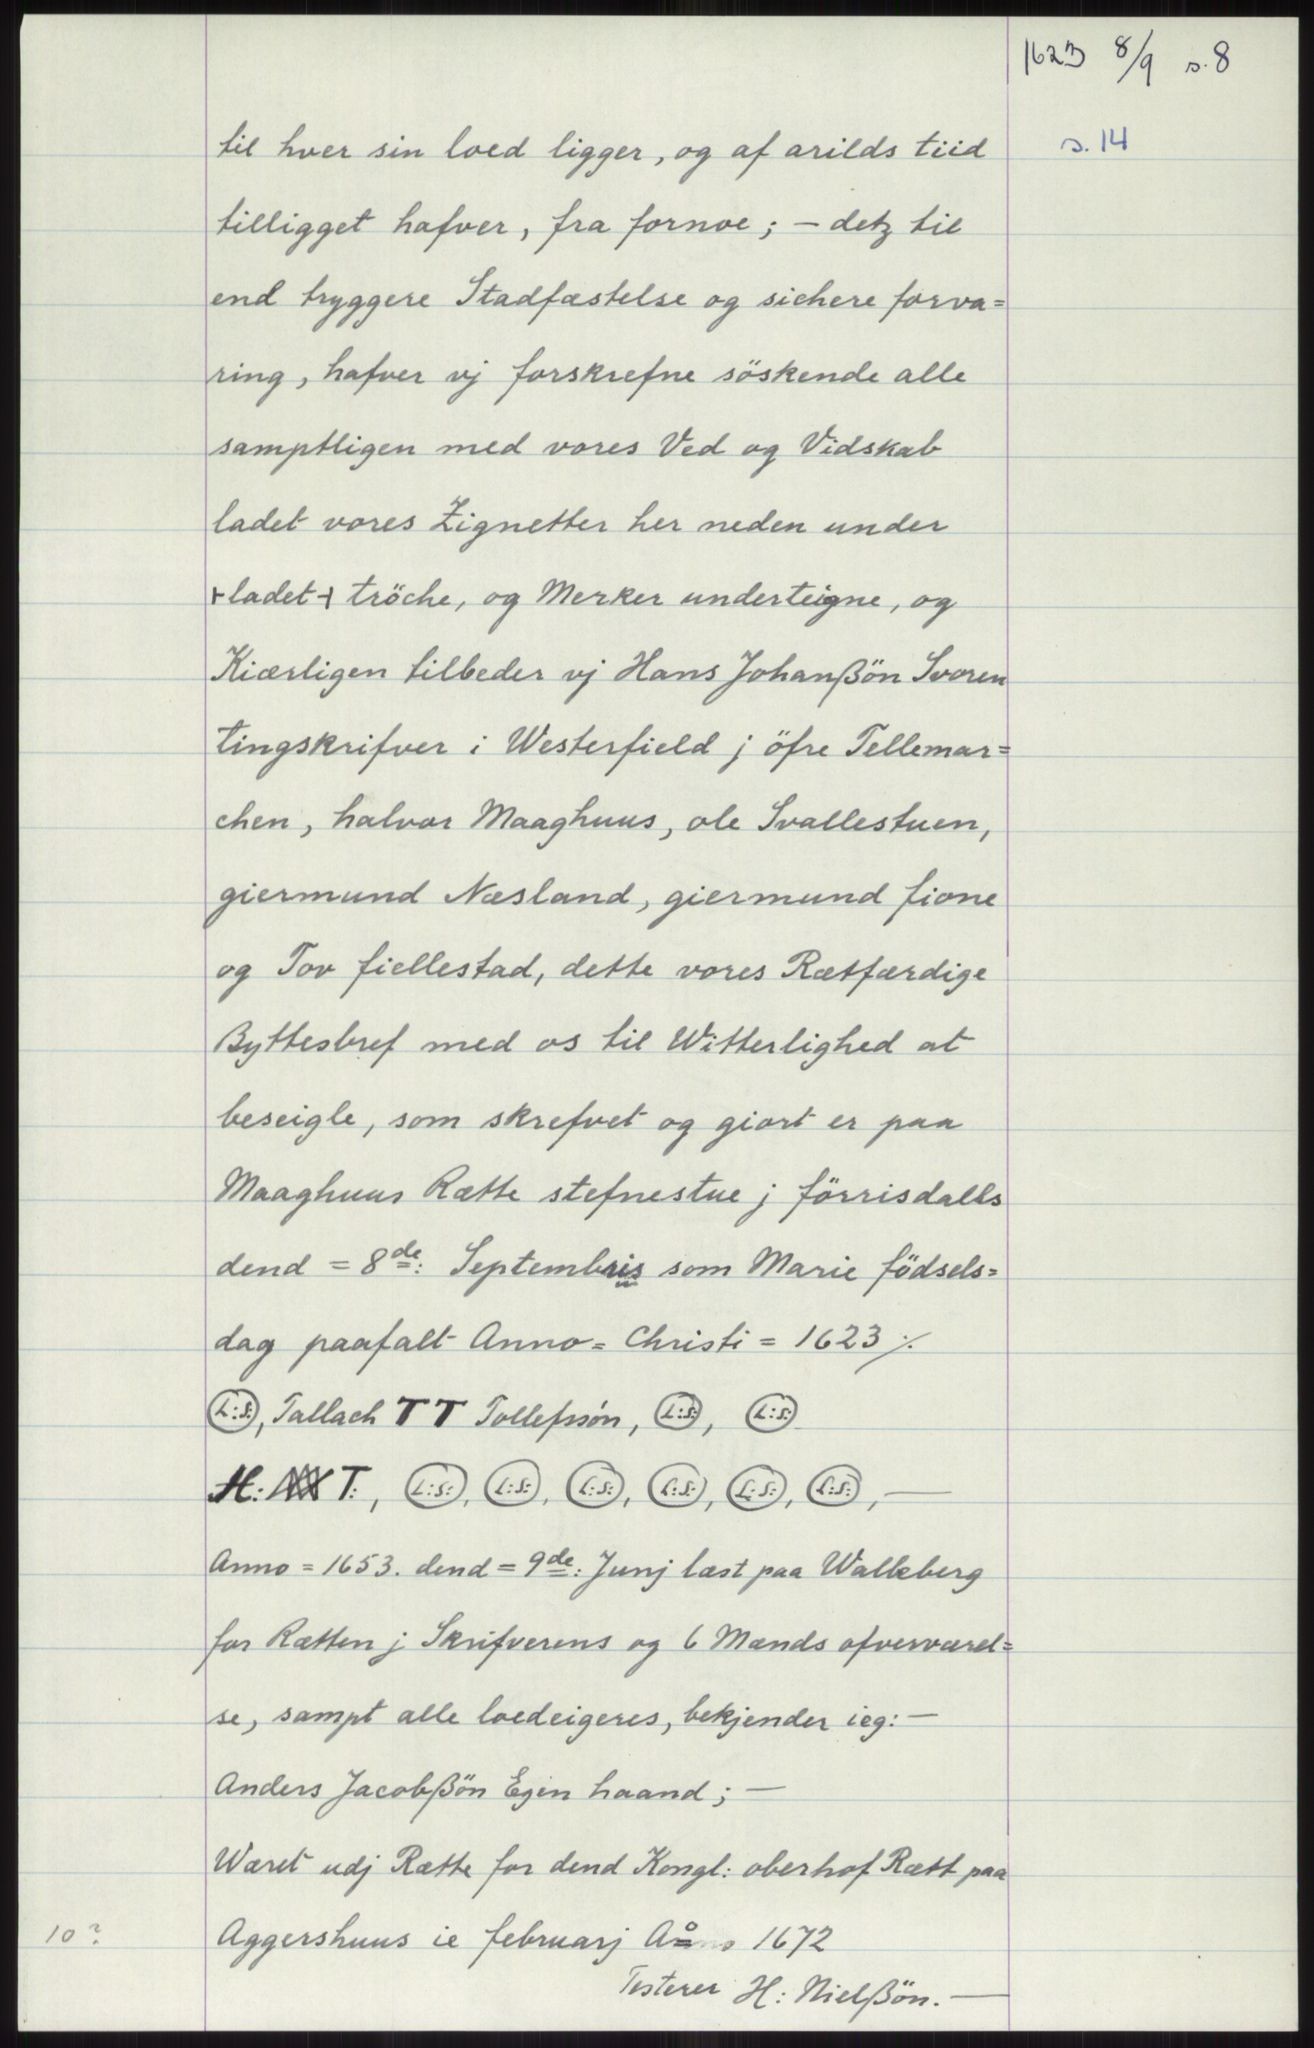 1623 8/9 s. 8
s. 14
til hver sin loed ligger, og af arilds tiid
tilligget hafver, fra fornoe; — detz til
end tryggere Stadfæstelse og sichere forva=
ring, hafver vj forskrefne söskende alle
samptligen med vores Ved og Vidskab
ladet vores Zignetter her neden under
+ladet+ tröche, og Merker underteigne, og
Kiærligen tilbeder vj Hans Johanßön Svoren
tingskrifver i Westerfield j öfre Tellemar=
chen, halvor Maaghuus, ole Svallestuen,
giermund Næsland, giermund fione
og Tov fiellestad, dette vores Rætfærdige
Byttesbref med os til Witterlighed at
beseigle, som skrefvet og giort er paa
Maaghuus Rætte stefnestue j förrisdalls
dend = 8de: Septembris som Marie födsels=
dag paafalt Anno = Christi = 1623 ./.
L:S:, Tallach T T Tollefssön, L:S:, L:S:
H: T:, L:S:, L:S:, L:S:, L:S:, L:S:, L:S:, —
Anno = 1653. dend = 9de: Junj læst paa Walleberg
for Rætten j Skrifverens og 6 Mænds ofverværel=
se, sampt alle loedeigeres, bekjender ieg: —
Anders Jacobßön Egen haand; —
Wæret udj Rætte for dend Kongl: oberhof Rætt paa
10? Aggershuus ie februarj Aå 1672
Testerer H: Nielßön. —